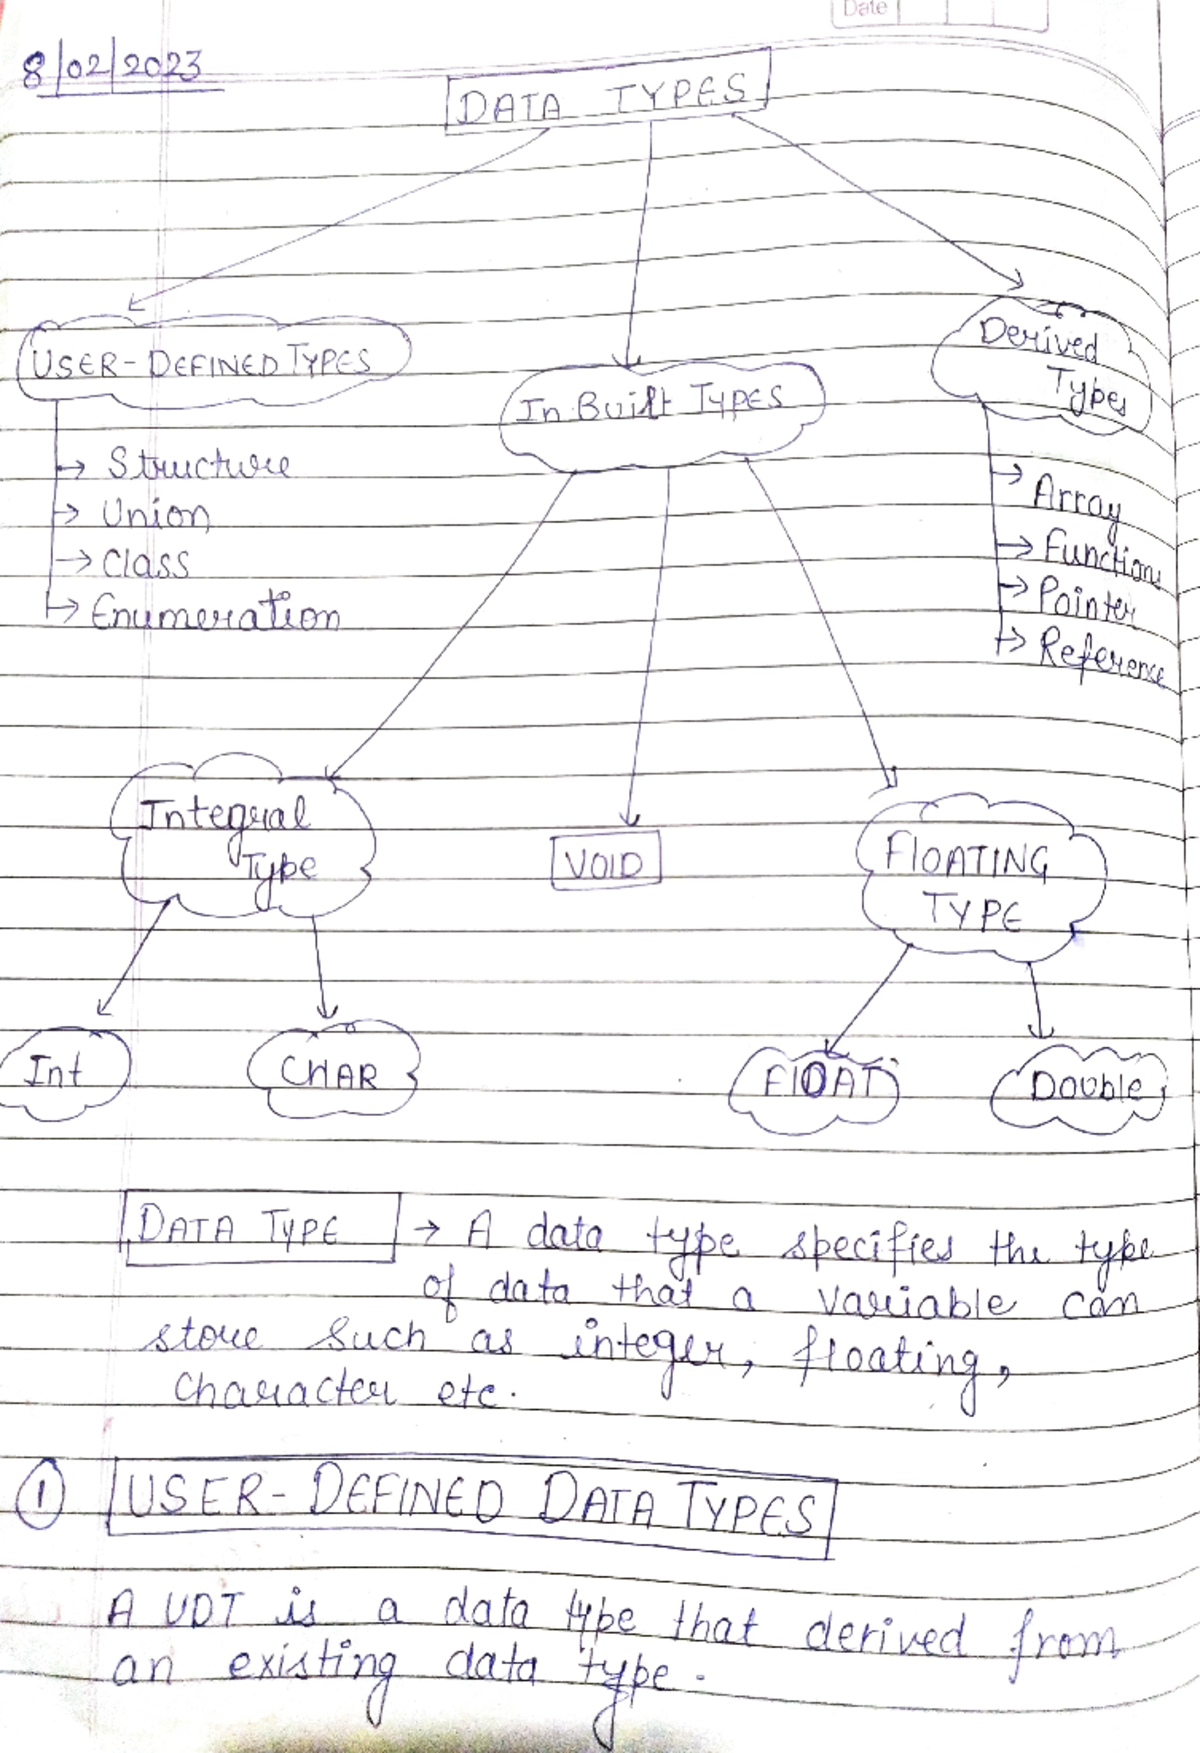 Date
8/02/2023
DATA TYPES
USER-DEFINED TYPES
In Built TYPES
Derived
Types
→ Structure
→ Union
→ Class
→ Enumeration
→ Array
→ Function
→ Pointer
→ Reference
Integral
Type
VOID
FlOATING
TYPE
Int
CHAR
FlOAT
Double
DATA TYPE → A data type specifies the type
of data that a variable can
store such as integer, floating,
character etc.
① USER-DEFINED DATA TYPES
A UDT is a data type that derived from
an existing data type.